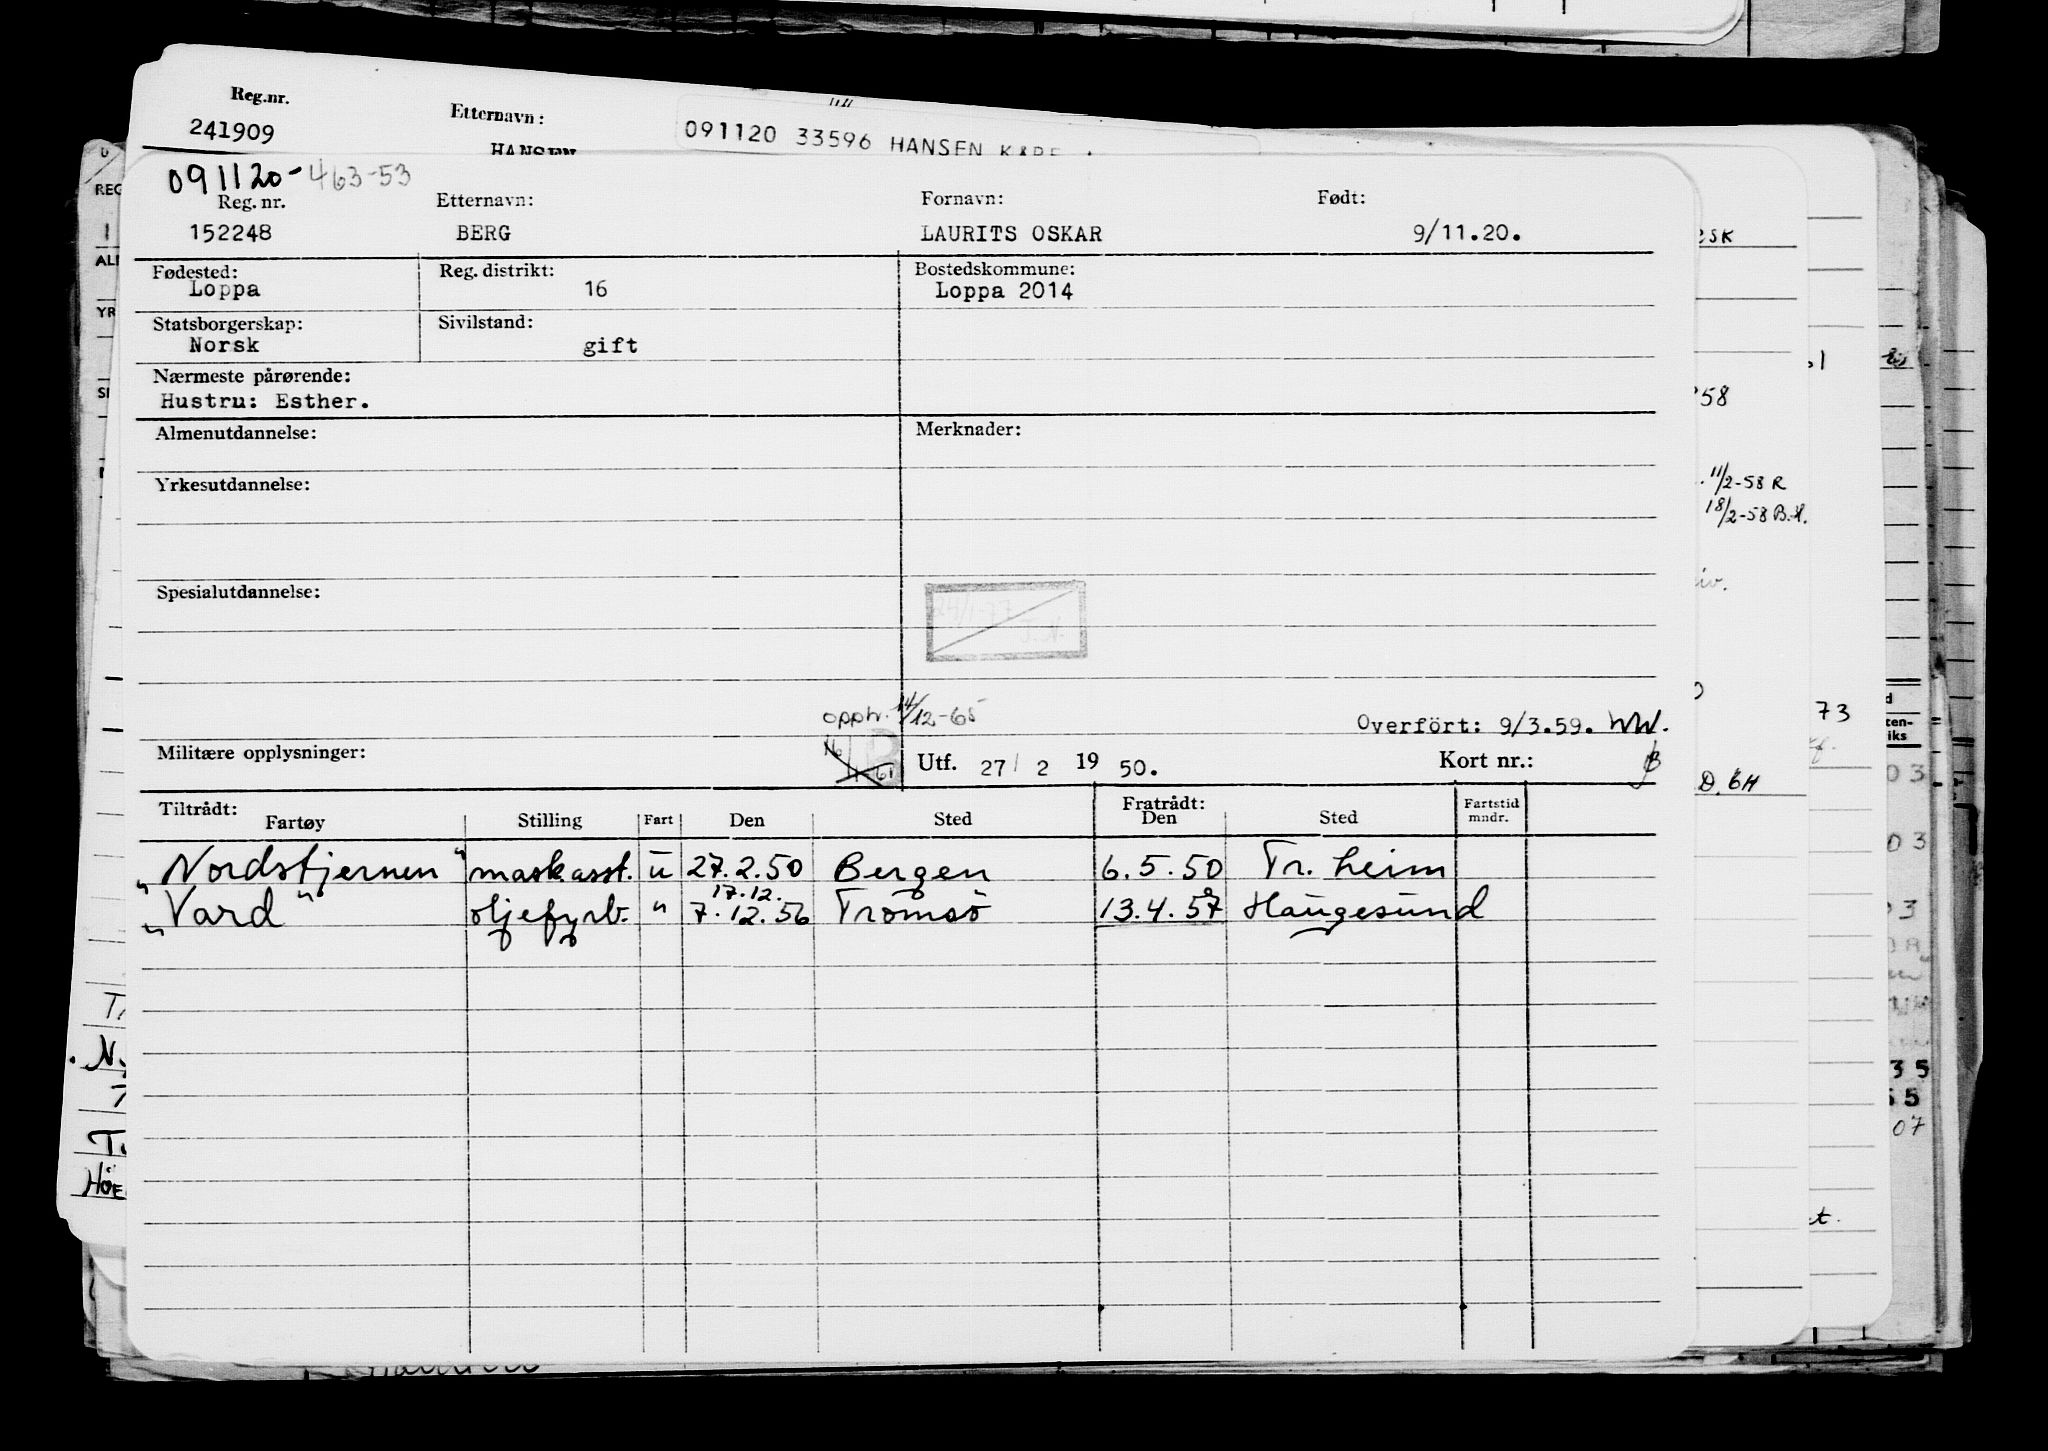 Reg.nr. Etternavn:
241909 HANSEN 091120 33596 HANSEN KÅRE
091120-463-53
Reg. nr. Etternavn: Fornavn: Født:
152248 BERG LAURITS OSKAR 9/11.20.
Fødested: Reg. distrikt: Bostedskommune:
Loppa 16 Loppa 2014
Statsborgerskap: Sivilstand:
Norsk gift
Nærmeste pårørende:
Hustru: Esther.
Almenutdannelse: Merknader:
Yrkesutdannelse:
11/2-58 R
18/2-58 B.H.
Spesialutdannelse:
24/1-77
J.N.
opptr. 14/12-65
Overfört: 9/3.59. WW.
Militære opplysninger: Utf. 27/ 2 19 50. Kort nr.:
Tiltrådt: Fratrådt:
Fartøy Stilling Fart Den Sted Den Sted Fartstid mndr.
"Nordstjernen" mask.asst. u 27.2.50 Bergen 6.5.50 Tr.heim
17.12.
"Vard" oljefyrb. " 7.12.56 Tromsö 13.4.57 Haugesund
58
73
D. 6H
03
03
35
55
07